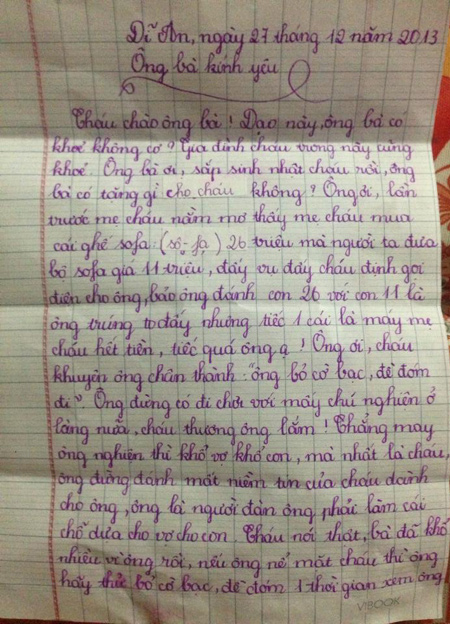 Dĩ An, ngày 27 tháng 12 năm 2013
Ông bà kính yêu
Cháu chào ông bà! Dạo này, ông bà có
khoẻ không cơ? Gia đình cháu trong này cũng
khoẻ. Ông bà ơi, sắp sinh nhật cháu rồi, ông
bà có tặng gì cho cháu không? Ông ơi, lần
trước mẹ cháu nằm mơ thấy mẹ cháu mua
cái ghế sofa (sô-fa) 26 triệu mà người ta đưa
bộ sofa giá 11 triệu, đấy vu đấy cháu định gọi
điện cho ông, bảo ông đánh con 26 với con 11 là
ông trúng to đấy nhưng tiếc 1 cái là máy mẹ
cháu hết tiền, tiếc quá ông ạ! Ông ơi, cháu
khuyên ông chân thành: "ông bỏ cờ bạc, đề đóm
đi". Ông đừng có đi chơi với mấy chú nghiện ở
làng nữa, cháu thương ông lắm! Chẳng may
ông nghiện thì khổ vợ khổ con, mà nhất là cháu,
ông đừng đánh mất niềm tin của cháu dành
cho ông, ông là người đàn ông phải làm cái
chỗ dựa cho vợ cho con. Cháu nói thật, bà đã khổ
nhiều vì ông rồi, nếu ông nể mặt cháu thì ông
hãy thử bỏ cờ bạc, đề đóm 1 thời gian xem ông
VIBOOK